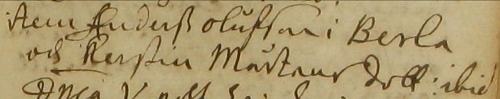 item Anderß olufson i Berla
och Kerstin Mårtens dott: ibid